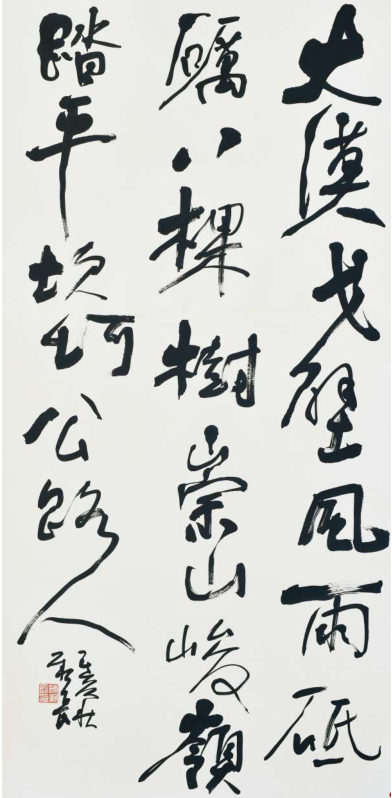 大漠戈壁风雨砥
礪八棵樹崇山峻嶺
踏平坎坷公路人